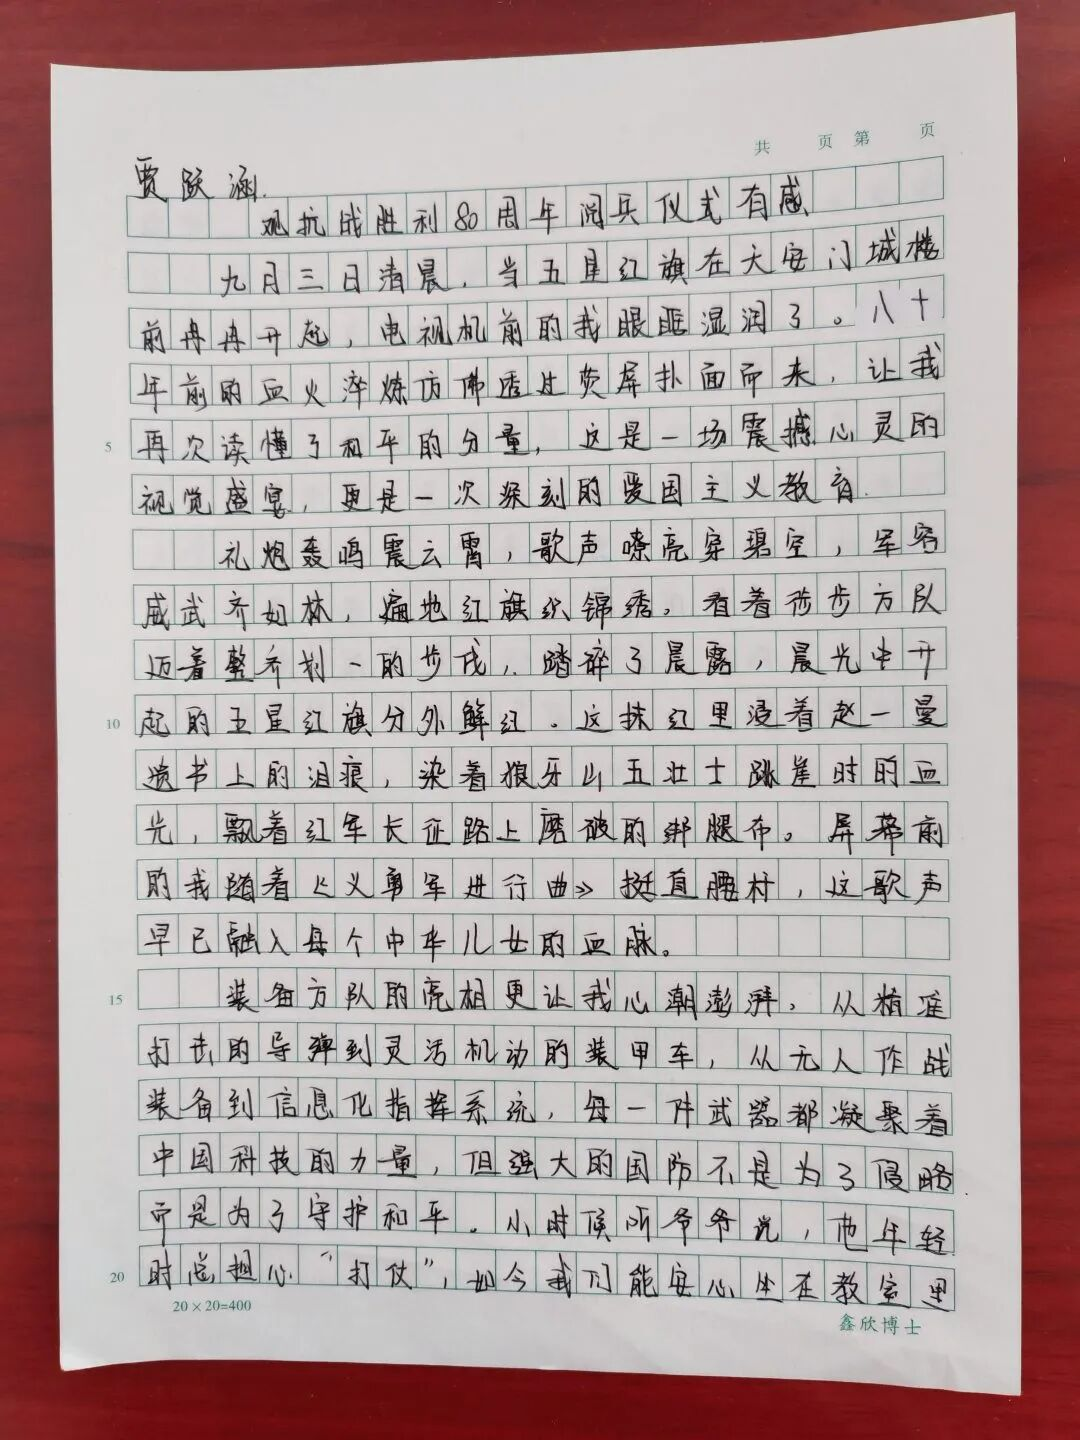 共 页 第 页
贾跃涵.
观抗战胜利80周年阅兵仪式有感
九月三日清晨，当五星红旗在天安门城楼
前冉冉升起，电视机前的我眼眶湿润了。八十
年前的血火淬炼仿佛透过荧屏扑面而来，让我
5 再次读懂了和平的分量，这是一场震撼心灵的
视觉盛宴，更是一次深刻的爱国主义教育.
礼炮轰鸣震云霄，歌声嘹亮穿碧空，军容
威武齐如林，遍地红旗织锦绣。看着徒步方队
迈着整齐划一的步伐，踏碎了晨露，晨光中升
10 起的五星红旗分外鲜红。这抹红里浸着赵一曼
遗书上的泪痕，染着狼牙山五壮士跳崖时的血
光，飘着红军长征路上磨破的绑腿布。屏幕前
的我随着《义勇军进行曲》挺直腰杆，这歌声
早已融入每个中华儿女的血脉。
15 装备方队的亮相更让我心潮澎湃，从精准
打击的导弹到灵活机动的装甲车，从无人作战
装备到信息化指挥系统，每一件武器都凝聚着
中国科技的力量，但强大的国防不是为了侵略
而是为了守护和平。小时候听爷爷说，他年轻
20 时总担心“打仗”，如今我们能安心坐在教室里
20×20=400
鑫欣博士